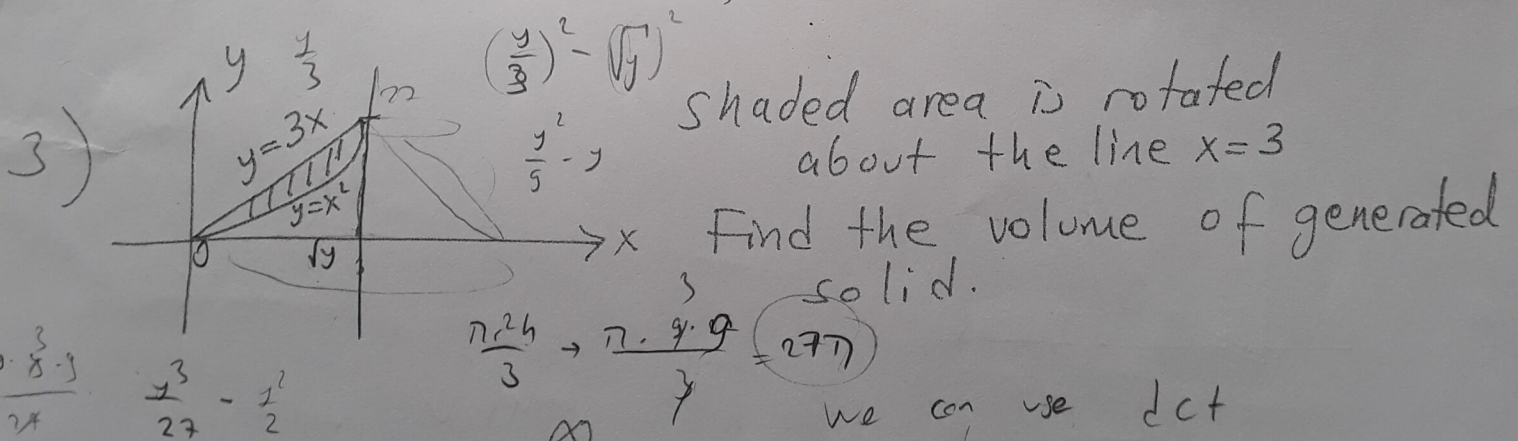 3)
y
y/3
(y/3)² - (√y)²
y=3x
y=x²
y²/9 - y
Shaded area is rotated
about the line x=3
Find the volume of generated
solid.
x
0
√y
= 27π
y³/27 - y²/2
we can use dct